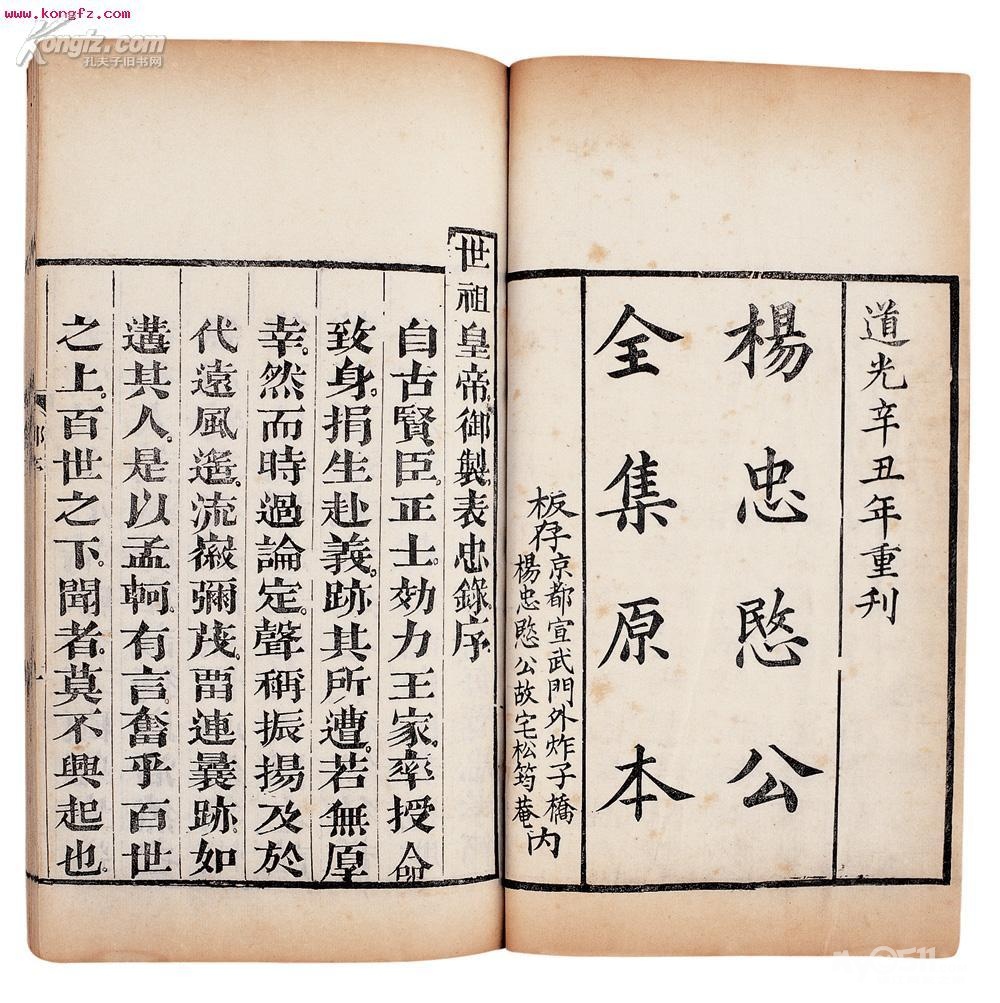 www.kongfz.com
Kongfz.com
孔夫子旧书网
道光辛丑年重刋
楊忠愍公
全集原本
板存京都宣武門外炸子橋
楊忠愍公故宅松筠菴內
世祖皇帝御製表忠錄序
自古賢臣正士効力王家率授命
致身捐生赴義跡其所遭若無厚
幸然而時過論定聲稱振揚及於
代遠風遙流徽彌茂畱連曩跡如
遘其人是以孟軻有言奮乎百世
之上百世之下聞者莫不興起也